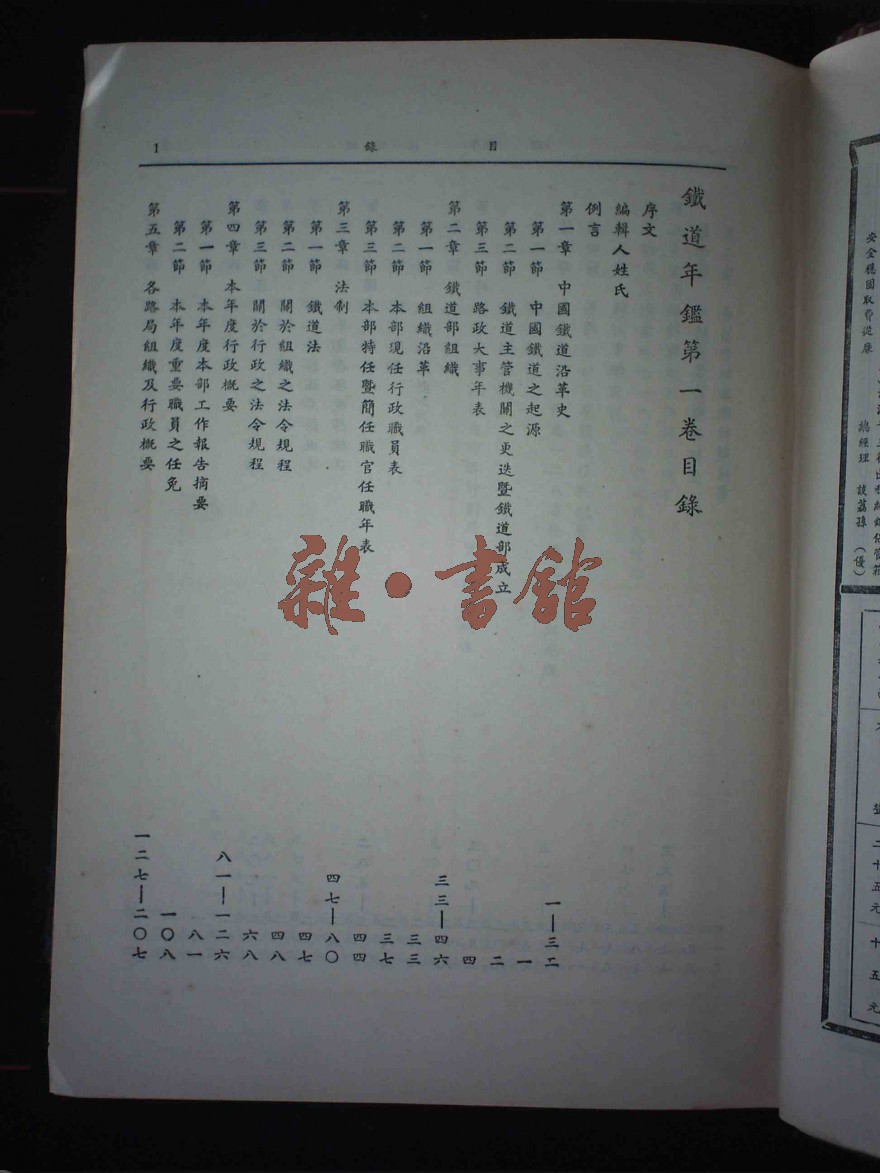 目錄
1
鐵道年鑑第一卷目錄
序文
編輯人姓氏
例言
第一章 中國鐵道沿革史 一—三二
第一節 中國鐵道之起源 一
第二節 鐵道主管機關之更迭暨鐵道部成立 二
第三節 路政大事年表 四
第二章 鐵道部組織 三三—四六
第一節 組織沿革 三三
第二節 本部現任行政職員表 三七
第三節 本部特任暨簡任職官任職年表 四四
第三章 法制 四七—八〇
第一節 鐵道法 四七
第二節 關於組織之法令規程 四八
第三節 關於行政之法令規程 六八
第四章 本年度行政概要 八一—一二六
第一節 本年度本部工作報告摘要 八一
第二節 本年度重要職員之任免 一〇八
第五章 各路局組織及行政概要 一二七—二〇七
雜·書館
安全穩固取費從廉
總經理 談荔孫
二十五元
十五元